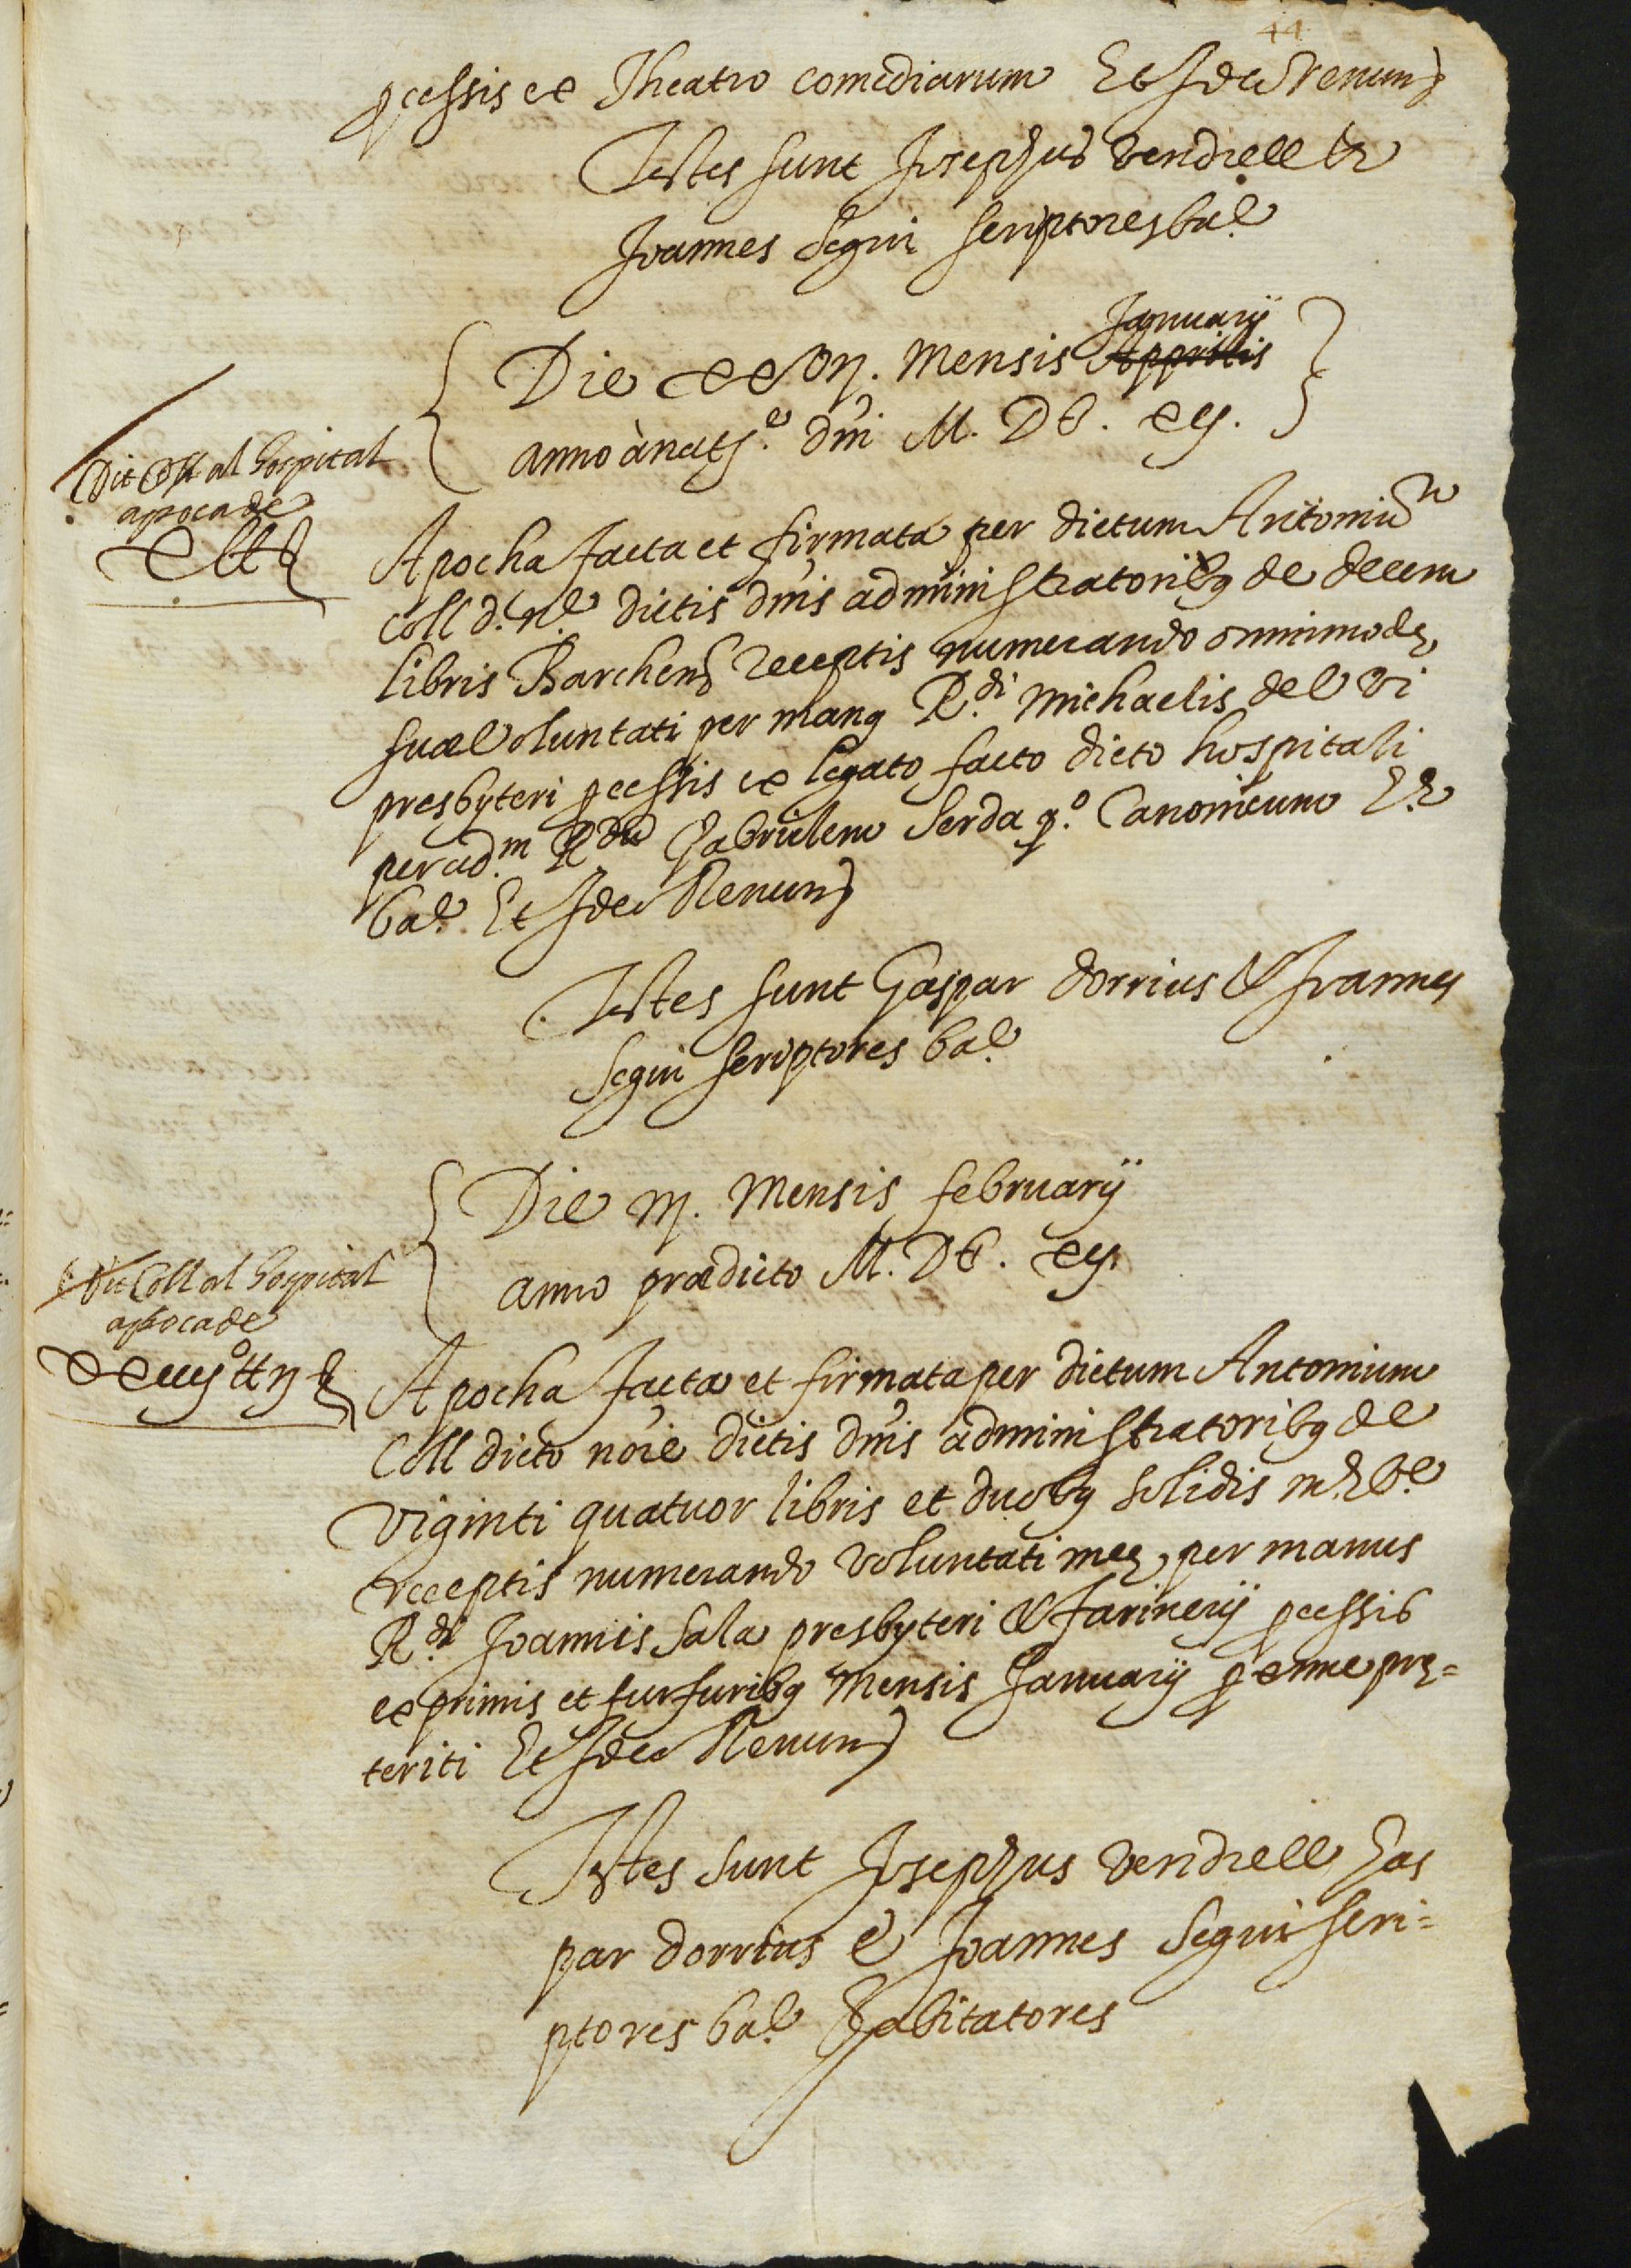 44
pcessis ex Theatro comediarum Et Ideo Renun
Testes sunt Josephus Vendrell &
Joannes Segui scriptores bar.
Die xxvij. Mensis Januarij Apprilis
anno à nat.e dni M. DC. xij.
Dit Coll al hospital
apoca de
x ll
Apocha facta et firmata per dictum Antonium
Coll d. n.e dictis dnis administratoribq de decem
libris Barchens receptis numerando omnimodę
suæ voluntati per manq R.di Michaelis del Vi
presbyteri pcessis ex legato facto dicto hospitali
per ad.m Rdu Gabrielem Serda q.o Canonicum
bar. Et Ideo Renun
Testes sunt Gaspar dorrius & Joannes
Segui scriptores bar.
Die iij. Mensis februarij
anno prædicto M. DC. xij.
Dit Coll al hospital
apoca de
xxiiij ll ij s
Apocha facta et firmata per dictum Antonium
Coll dicto noie dictis dnis administratoribq de
Viginti quatuor libris et duobq solidis
receptis numerando voluntati meę, per manus
R.di Joannis Sala presbyteri & farinerij pcessis
ex primis et furfuribq Mensis Januarij pxime prę=
teriti Et Ideo Renun
Testes sunt Josephus Vendrell Gas
par dorrius & Joannes Segui scri=
ptores bar. habitatores